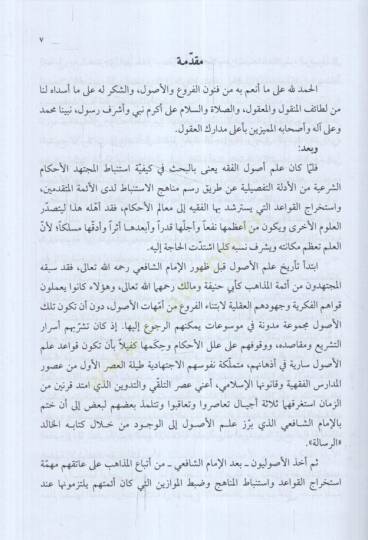 ٧
مقدّمة
الحمد لله على ما أنعم به من فنون الفروع والأصول، والشكر له على ما أسداه لنا
من لطائف المنقول والمعقول، والصلاة والسلام على أكرم نبي وأشرف رسول، نبينا محمد
وعلى آله وأصحابه المميزين بأعلى مدارك العقول.
وبعد:
فلمّا كان علم أصول الفقه يعنى بالبحث في كيفيّة استنباط المجتهد الأحكام
الشرعية من الأدلة التفصيلية عن طريق رسم مناهج الاستنباط لدى الأئمة المتقدمين،
واستخراج القواعد التي يسترشد بها الفقيه إلى معالم الأحكام، فقد أهله هذا ليتصدّر
العلوم الأخرى ويكون من أعظمها نفعاً وأجلّها قدراً وأبعدها أثراً وأدقّها مسلكاً؛ لأنّ
العلم تعظم مكانته ويشرف نسبه كلما اشتدّت الحاجة إليه.
ابتدأ تأريخ علم الأصول قبل ظهور الإمام الشافعي رحمه الله تعالى، فقد سبقه
المجتهدون من أئمة المذاهب كأبي حنيفة ومالك رحمهما الله تعالى، وهؤلاء كانوا يعملون
قواهم الفكرية وجهودهم العقلية لابتناء الفروع من أمّهات الأصول، دون أن تكون تلك
الأصول مجموعة مدونة في موسوعات يمكنهم الرجوع إليها. إذ كان تشرّبهم أسرار
التشريع ومقاصده، ووقوفهم على علل الأحكام وحِكمها كفيلاً بأن تكون قواعد علم
الأصول سارية في أذهانهم، متملّكة نفوسهم الاجتهادية طيلة العصر الأول من عصور
المدارس الفقهية وقانونها الإسلامي، أعني عصر التلقّي والتدوين الذي امتد قرنين من
الزمان استغرقهما ثلاثة أجيال تعاصروا وتعاقبوا وتتلمذ بعضهم لبعض إلى أن ختم
بالإمام الشافعي الذي برّز علم الأصول إلى الوجود من خلال كتابه الخالد
«الرسالة».
ثم أخذ الأصوليون ـ بعد الإمام الشافعي ـ من أتباع المذاهب على عاتقهم مهمّة
استخراج القواعد واستنباط المناهج وضبط الموازين التي كان أئمتهم يلتزمونها عند